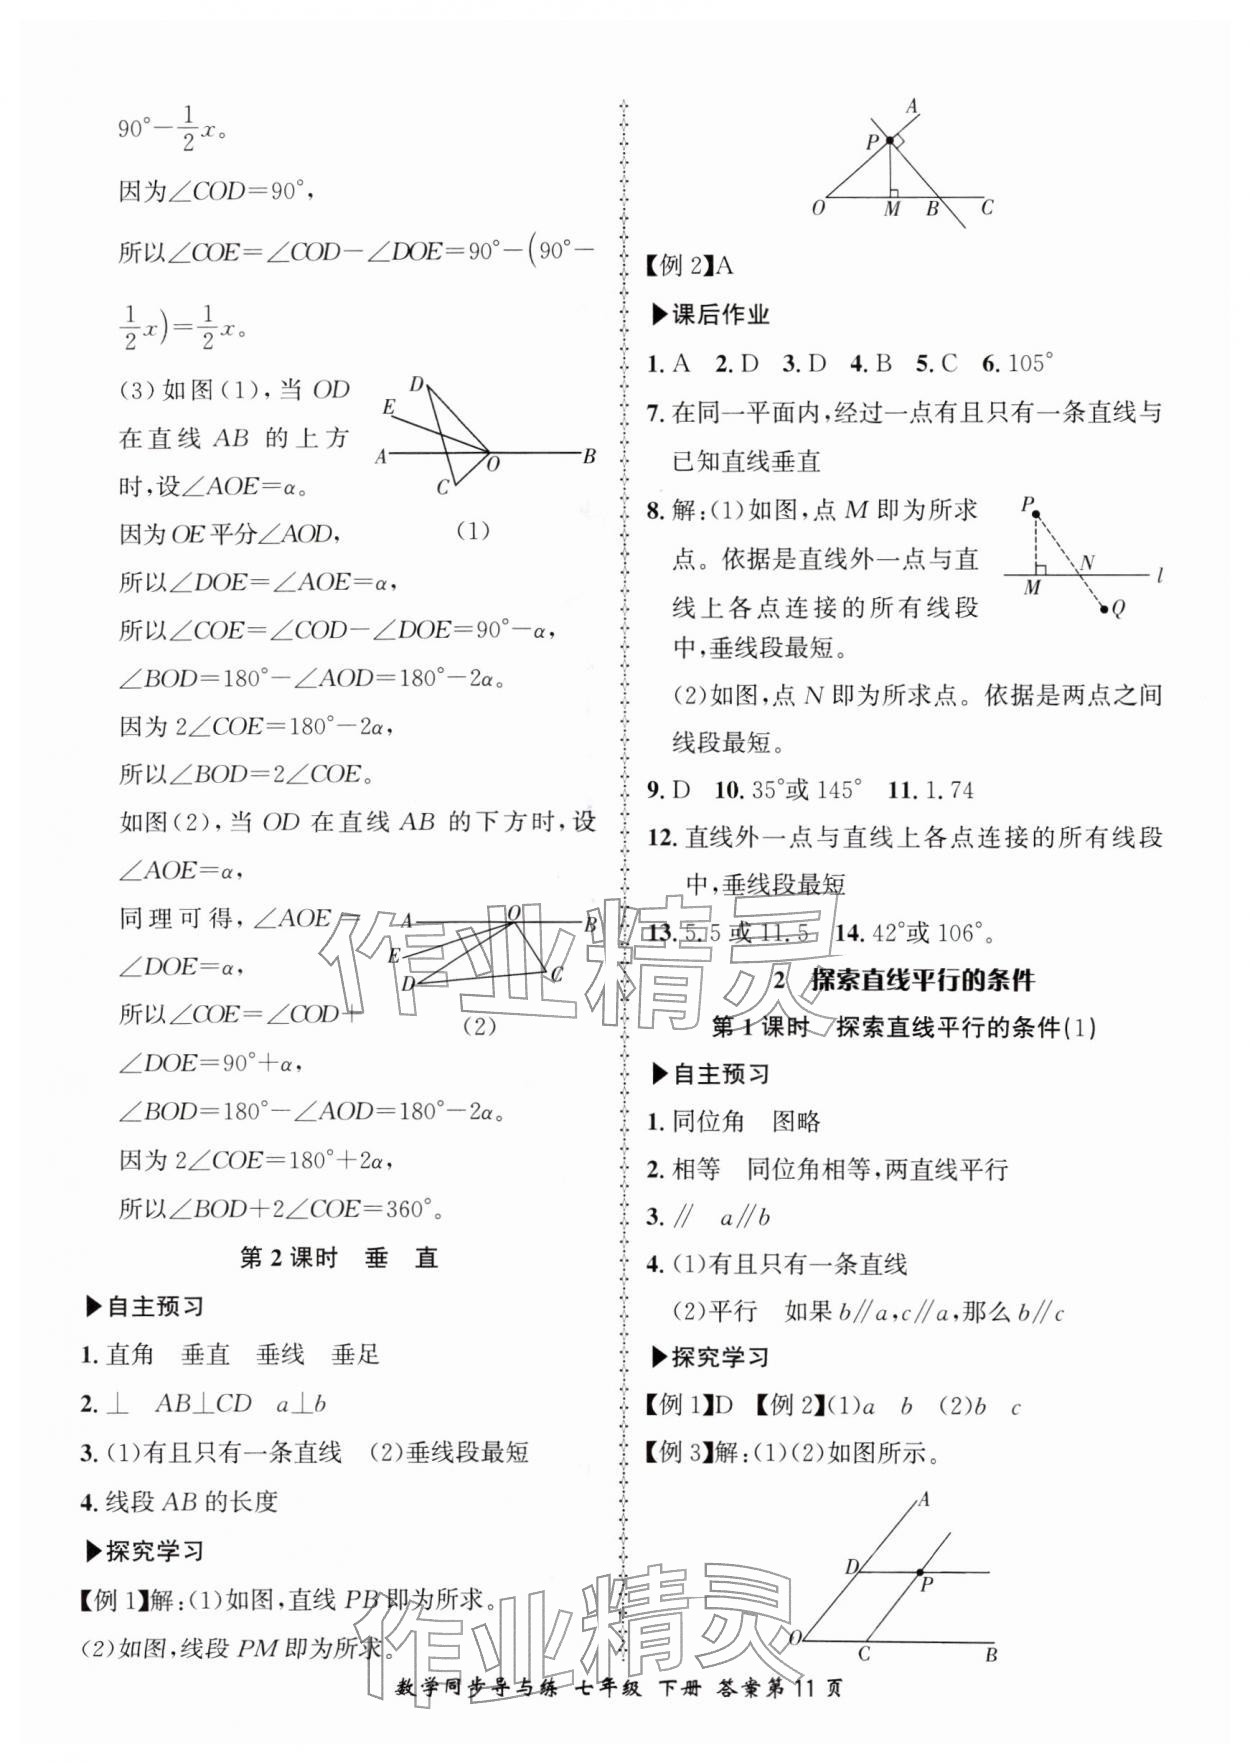 90°－1/2x。
因为∠COD＝90°，
所以∠COE＝∠COD－∠DOE＝90°－(90°－
1/2x)＝1/2x。
(3)如图(1)，当 OD
在直线 AB 的上方
时，设∠AOE＝α。
因为 OE 平分∠AOD，
所以∠DOE＝∠AOE＝α，
所以∠COE＝∠COD－∠DOE＝90°－α，
∠BOD＝180°－∠AOD＝180°－2α。
因为 2∠COE＝180°－2α，
所以∠BOD＝2∠COE。
D
E
A
O
B
C
(1)
如图(2)，当 OD 在直线 AB 的下方时，设
∠AOE＝α，
同理可得，∠AOE＝
∠DOE＝α，
所以∠COE＝∠COD＋
∠DOE＝90°＋α，
∠BOD＝180°－∠AOD＝180°－2α。
因为 2∠COE＝180°＋2α，
所以∠BOD＋2∠COE＝360°。
A
O
B
E
D
C
(2)
第 2 课时　垂　直
▶自主预习
1. 直角　垂直　垂线　垂足
2. ⊥　AB⊥CD　a⊥b
3. (1)有且只有一条直线　(2)垂线段最短
4. 线段 AB 的长度
▶探究学习
【例 1】解：(1)如图，直线 PB 即为所求。
(2)如图，线段 PM 即为所求。
A
P
O
M
B
C
【例 2】A
▶课后作业
1. A　2. D　3. D　4. B　5. C　6. 105°
7. 在同一平面内，经过一点有且只有一条直线与
已知直线垂直
8. 解：(1)如图，点 M 即为所求
点。依据是直线外一点与直
线上各点连接的所有线段
中，垂线段最短。
P
N
M
l
Q
(2)如图，点 N 即为所求点。依据是两点之间
线段最短。
9. D　10. 35°或 145°　11. 1. 74
12. 直线外一点与直线上各点连接的所有线段
中，垂线段最短
13. 5. 5 或 11. 5　14. 42°或 106°。
2　探索直线平行的条件
第 1 课时　探索直线平行的条件(1)
▶自主预习
1. 同位角　图略
2. 相等　同位角相等，两直线平行
3. ∥　a∥b
4. (1)有且只有一条直线
(2)平行　如果 b∥a，c∥a，那么 b∥c
▶探究学习
【例 1】D　【例 2】(1)a　b　(2)b　c
【例 3】解：(1)(2)如图所示。
A
D
P
O
C
B
数学同步导与练　七年级　下册　答案第 11 页
作业精灵
作业精灵